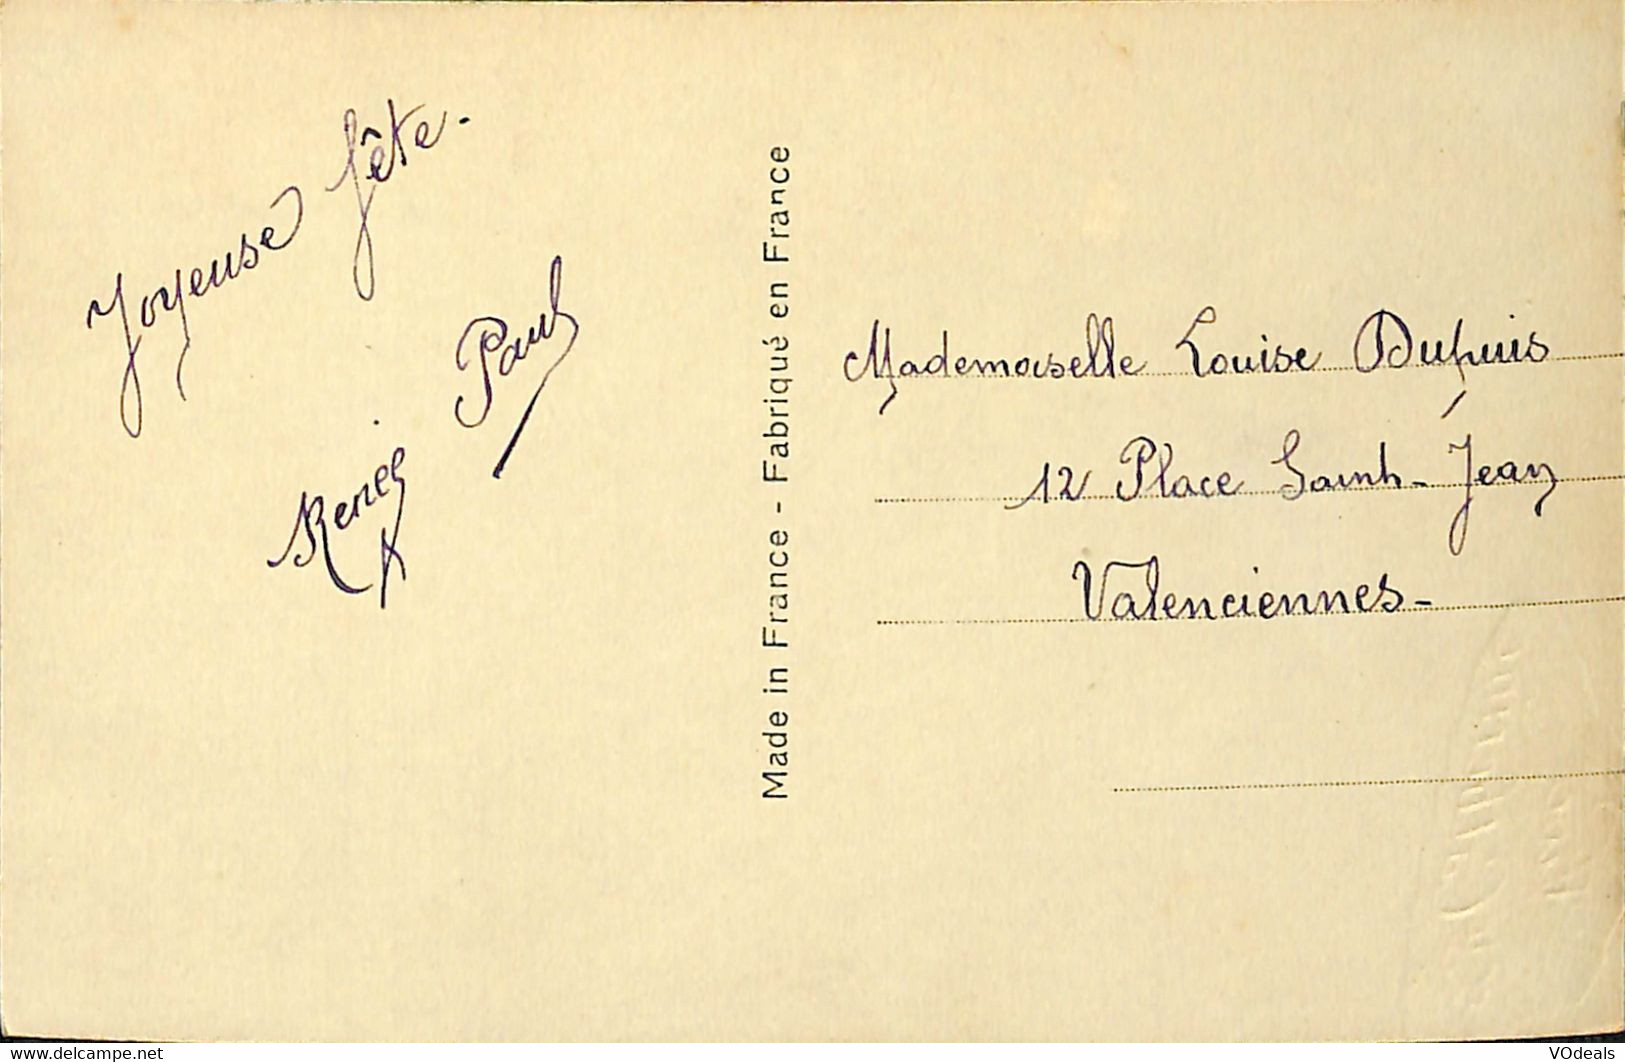 Joyeuse fête.
Paul
René
Made in France - Fabriqué en France
Mademoiselle Louise Dupuis
12 Place Saint-Jean
Valenciennes-
delcampe.net
VOdeals